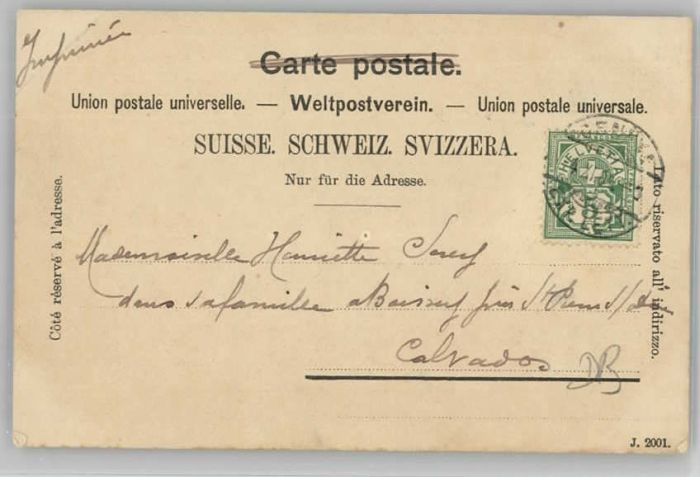 Imprimé
Carte postale.
Union postale universelle. — Weltpostverein. — Union postale universale.
SUISSE. SCHWEIZ. SVIZZERA.
Nur für die Adresse.
Côté réservé à l'adresse.
Lato riservato all' indirizzo.
HELVETIA
Mademoiselle Henriette
dans sa famille à Boissey près St Pierre s/
Calvados
J. 2001.